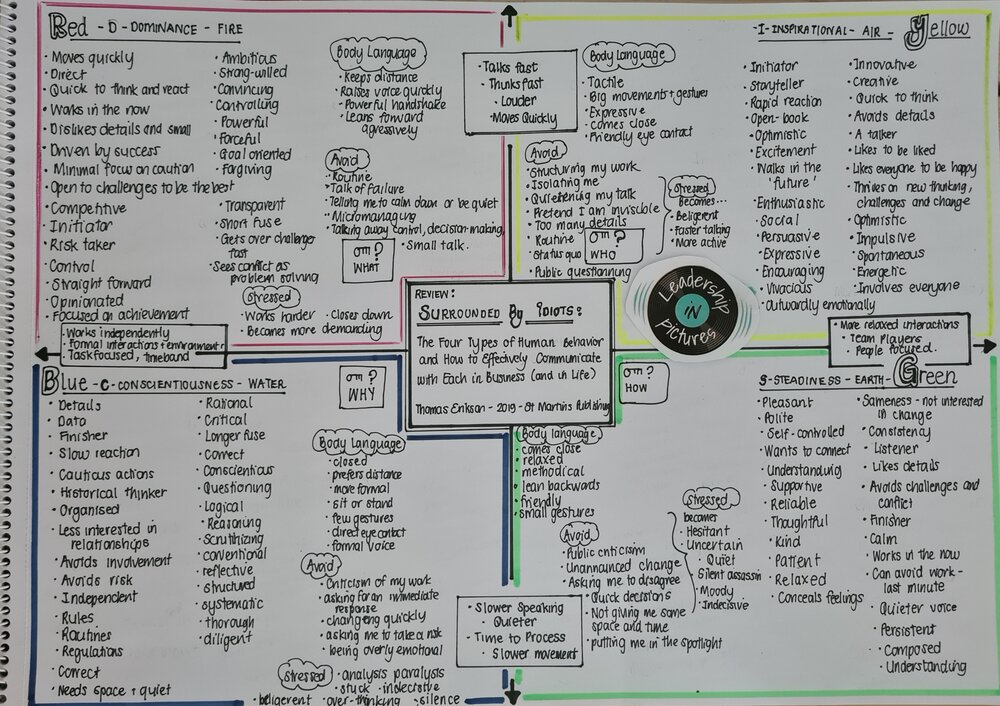 Red - D - DOMINANCE - FIRE
· Moves quickly
· Direct
· Quick to think and react
· Works in the now
· Dislikes details and small
· Driven by success
· Minimal focus on caution
· Open to challenges to be the best
· Competitive
· Initiator
· Risk taker
· Control
· Straight forward
· Opinionated
· Focused on achievement
· Ambitious
· Strong-willed
· Convincing
· Controlling
· Powerful
· Forceful
· Goal oriented
· Forgiving
· Transparent
· Short fuse
· Gets over challenges
fast
· Sees conflict as
problem solving
Body Language
· Keeps distance
· Raises voice quickly
· Powerful handshake
· Leans forward
aggressively
Avoid
· Routine
· Talk of failure
· Telling me to calm down or be quiet
· Micromanaging
· Talking away control, decision-making
· Small talk.
om?
WHAT
Stressed
· Works harder
· Closes down
· Becomes more demanding
· Talks fast
· Thinks fast
· Louder
· Moves Quickly
- I - INSPIRATIONAL - AIR - Yellow
Body Language
· Tactile
· Big movements + gestures
· Expressive
· Comes close
· Friendly eye contact
Avoid
· Structuring my work
· Isolating me
· Quietening my talk
· Pretend I am invisible
· Too many details
· Routine
· Status quo
· Public questionning
om?
WHO
Stressed
Becomes...
· Beligerent
· Faster talking
· More active
· Initiator
· Storyteller
· Rapid reaction
· Open-book
· Optimistic
· Excitement
· Walks in the
'future'
· Enthusiastic
· Social
· Persuasive
· Expressive
· Encouraging
· Vivacious
· Outwardly emotionally
· Innovative
· Creative
· Quick to think
· Avoids details
· A talker
· Likes to be liked
· Likes everyone to be happy
· Thrives on new thinking,
challenges and change
· Optimistic
· Impulsive
· Spontaneous
· Energetic
· Involves everyone
· Works independently
· Formal interactions + environment
· Task focused, timeband
REVIEW:
SURROUNDED By IDIOTS:
The Four Types of Human Behavior
and How to Effectively Communicate
with Each in Business (and in Life)
Thomas Erikson - 2019 - St Martins Publishing
Leadership
IN
Pictures
· More relaxed interactions
· Team players
· People focused.
Blue - C - CONSCIENTIOUSNESS - WATER
· Details
· Data
· Finisher
· Slow reaction
· Cautious actions
· Historical thinker
· Organised
· Less interested in
relationships
· Avoids involvement
· Avoids risk
· Independent
· Rules
· Routines
· Regulations
· Correct
· Needs space + quiet
· Rational
· Critical
· Longer fuse
· Correct
· Conscientious
· Questioning
· Logical
· Reasoning
· Scrutizing
· conventional
· reflective
· structured
· systematic
· thorough
· diligent
om?
WHY
Body Language
· closed
· prefers distance
· more formal
· sit or stand
· few gestures
· direct eye contact
· formal voice
Avoid
· Criticism of my work
· asking for an immediate
response
· changing quickly
· asking me to take a risk
· being overly emotional
Stressed
· analysis paralysis
· stuck · indecisive
· beligerent · over-thinking · silence
· Slower Speaking
· Quieter
· Time to Process
· Slower movement
S - STEADINESS - EARTH - Green
om?
HOW
Body language
· comes close
· relaxed
· methodical
· lean backwards
· friendly
· small gestures
Avoid
· Public criticism
· Unannounced change
· Asking me to disagree
· Quick decisions
· Not giving me some
space and time
· putting me in the spotlight
Stressed
becomes
· Hesitant
· Uncertain
· Quiet
· Silent assassin
· Moody
· Indecisive
· Pleasant
· Polite
· Self-controlled
· Wants to connect
· Understanding
· Supportive
· Reliable
· Thoughtful
· Kind
· Patient
· Relaxed
· Conceals feelings
· Sameness - not interested
in change
· Consistency
· Listener
· Likes details
· Avoids challenges and
conflict
· Finisher
· Calm
· Works in the now
· Can avoid work -
last minute
· Quieter voice
· Persistent
· Composed
· Understanding